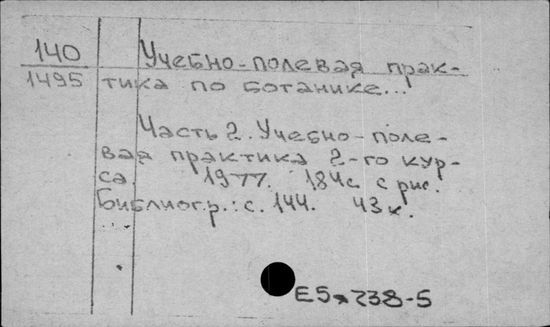 140 Учебно-полевая прак-
1495 тика по ботанике...
Часть 2. Учебно-поле-
вая практика 2-го кур-
са. 1977. 184с. с рис.
Библиогр.: с. 144. 43 к.